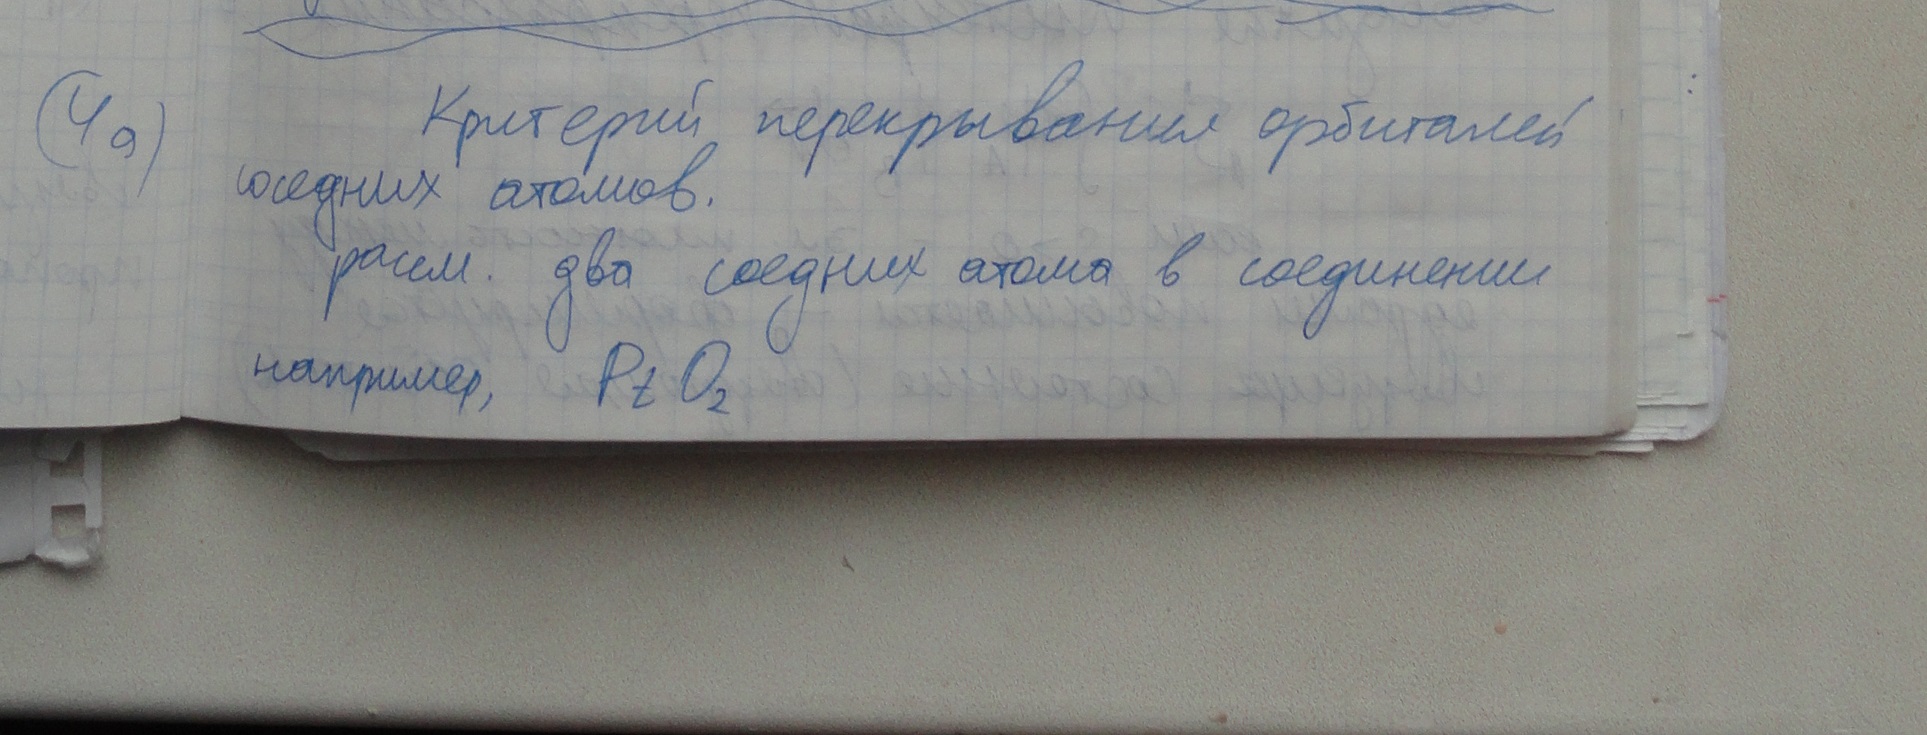 (4а) Критерий перекрывания орбиталей
соседних атомов.
рассм. два соседних атома в соединении
например, PtO₂